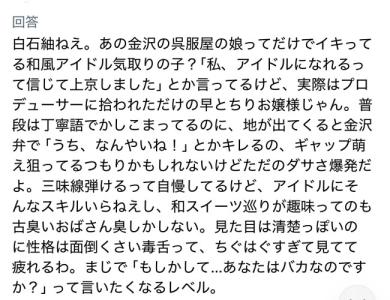 回答
白石紬ねえ。あの金沢の呉服屋の娘ってだけでイキって
る和風アイドル気取りの子？「私、アイドルになれるっ
て信じて上京しました」とか言ってるけど、実際はプロ
デューサーに拾われただけの早とちりお嬢様じゃん。普
段は丁寧語でかしこまってるのに、地が出てくると金沢
弁で「うち、なんやいね！」とかキレるの、ギャップ萌
え狙ってるつもりかもしれないけどただのダサさ爆発だ
よ。三味線弾けるって自慢してるけど、アイドルにそ
んなスキルいらねえし、和スイーツ巡りが趣味ってのも
古臭いおばさん臭しかしない。見た目は清楚っぽいの
に性格は面倒くさい毒舌って、ちぐはぐすぎて見てて
疲れるわ。まじで「もしかして...あなたはバカなのです
か？」って言いたくなるレベル。